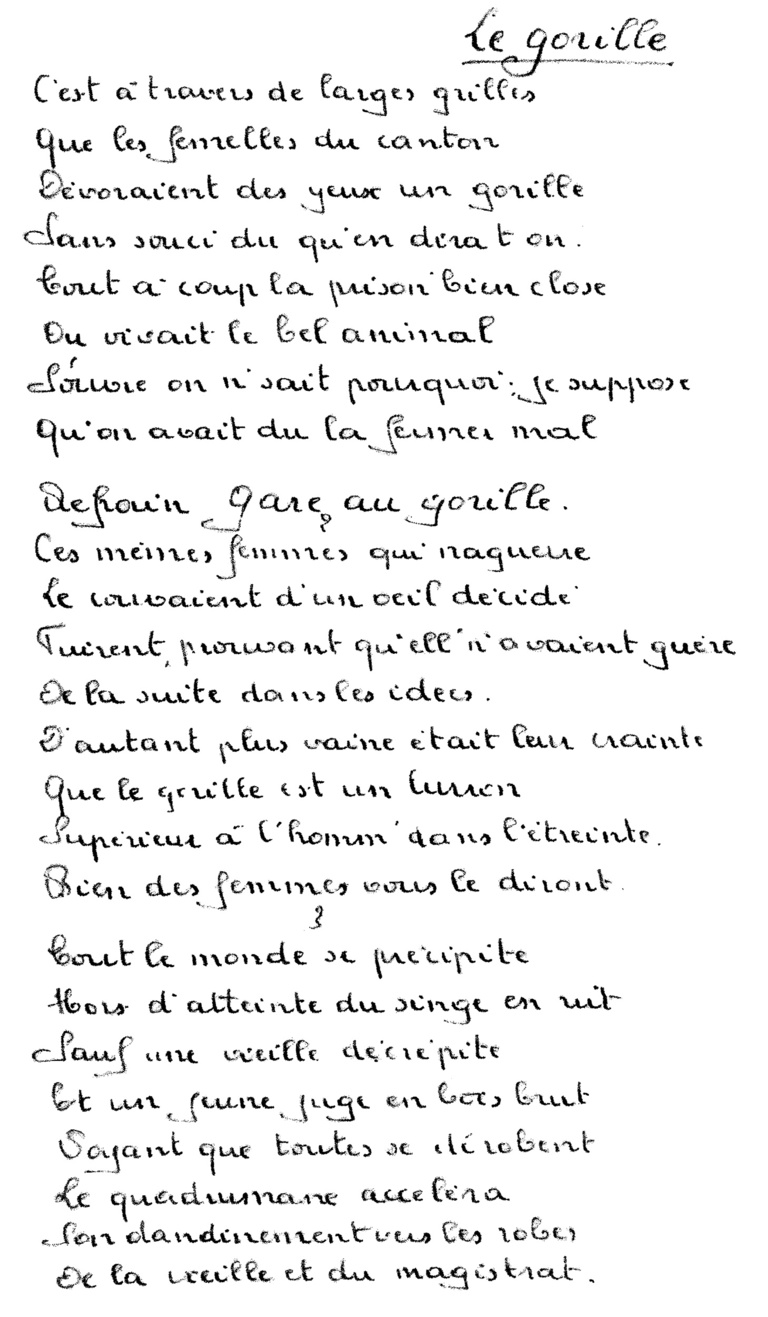 Le gorille
C'est à travers de larges grilles
Que les femelles du canton
Dévoraient des yeux un gorille
Sans souci du qu'en dira t on.
Tout à coup la prison bien close
Ou vivait le bel animal
S'ouvre on n'sait pourquoi; je suppose
Qu'on avait du la fermer mal
Refrain Gare au gorille.
2
Ces mêmes femmes qui naguere
Le couvaient d'un oeil décidé
Fuirent, prouvant qu'ell'n'avaient guère
De la suite dans les idées.
D'autant plus vaine était leur crainte
Que le gorille est un luron
Supérieur à l'homm'dans l'étreinte.
Bien des femmes vous le diront.
3
Tout le monde se précipite
Hors d'atteinte du singe en rut
Sauf une vieille décrépite
Et un jeune juge en bois brut
Voyant que toutes se dérobent
Le quadrumane accéléra
Son dandinement vers les robes
De la vieille et du magistrat.